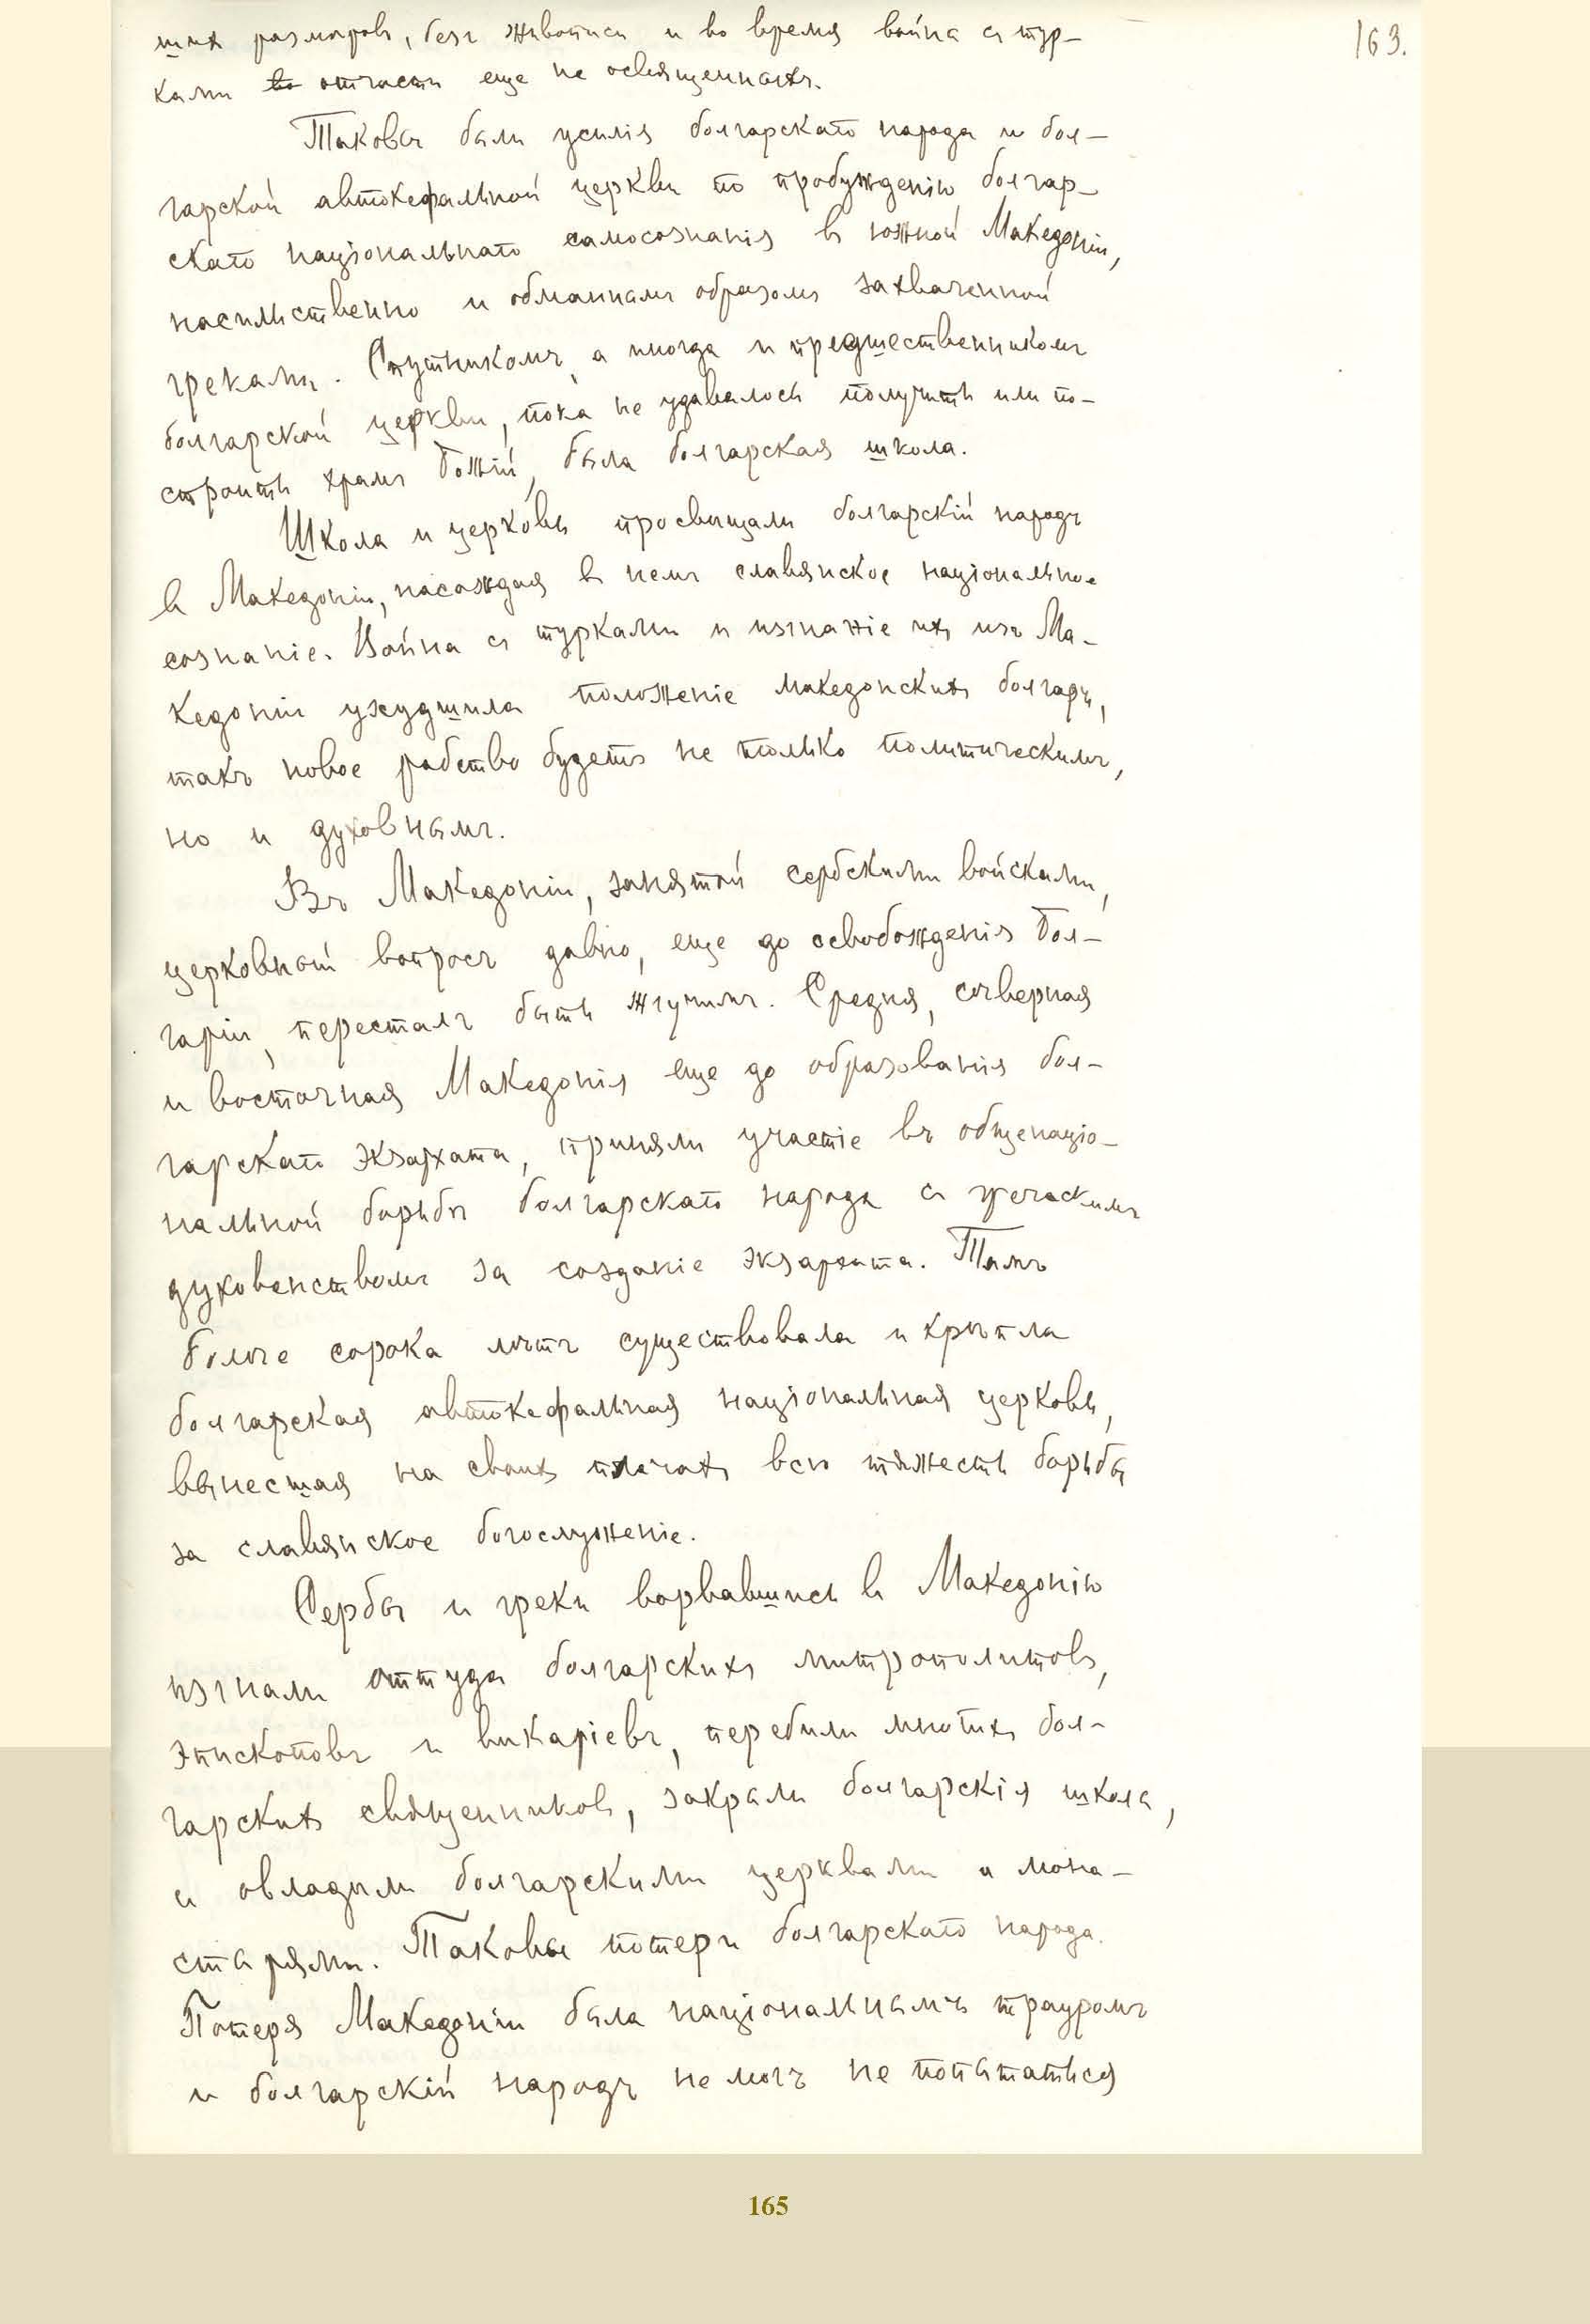 шихъ размѣровъ, безъ живописи и во время войны съ тур-
163.
ками во отчасти еще не освященныхъ.
Таковы были усилія болгарскаго народа и бол-
гарской автокефальной церкви по пробужденію болгар-
скаго національнаго самосознанія въ южной Македоніи,
насильственно и обманнымъ образомъ захваченной
греками. Спутникомъ, а иногда и предшественникомъ
болгарской церкви, пока не удавалось получить или по-
строить храмъ Божій, была болгарская школа.
Школа и церковь просвѣщали болгарскій народъ
въ Македоніи, насаждая въ немъ славянское національное
сознаніе. Война съ турками и изгнаніе ихъ изъ Ма-
кедоніи ухудшила положеніе македонскихъ болгаръ,
такъ новое рабство будетъ не только политическимъ,
но и духовнымъ.
Въ Македоніи, занятой сербскими войсками,
церковный вопросъ давно, еще до освобожденія Бол-
гаріи, пересталъ быть жгучимъ. Средня, сѣверная
и восточная Македонія еще до образованія бол-
гарскаго экзархата, приняли участіе въ общенаціо-
нальной борьбы болгарскаго народа съ греческимъ
духовенствомъ за созданіе экзархата. Тамъ
болѣе сорока лѣтъ существовала и крѣпла
болгарская автокефальная національная церковь,
вынесшая на своихъ плечахъ всю тяжесть борьбы
за славянское богослуженіе.
Сербы и греки ворвавшись въ Македонію
изгнали оттуда болгарскихъ митрополитовъ,
эпископовъ и викаріевъ, перебили многихъ бол-
гарскихъ священниковъ, закрыли болгарскія школы,
и овладѣли болгарскими церквами и мона-
старями. Таковы потери болгарскаго народа.
Потеря Македоніи была національнымъ трауромъ
и болгарскій народъ не могъ не попытаться
165